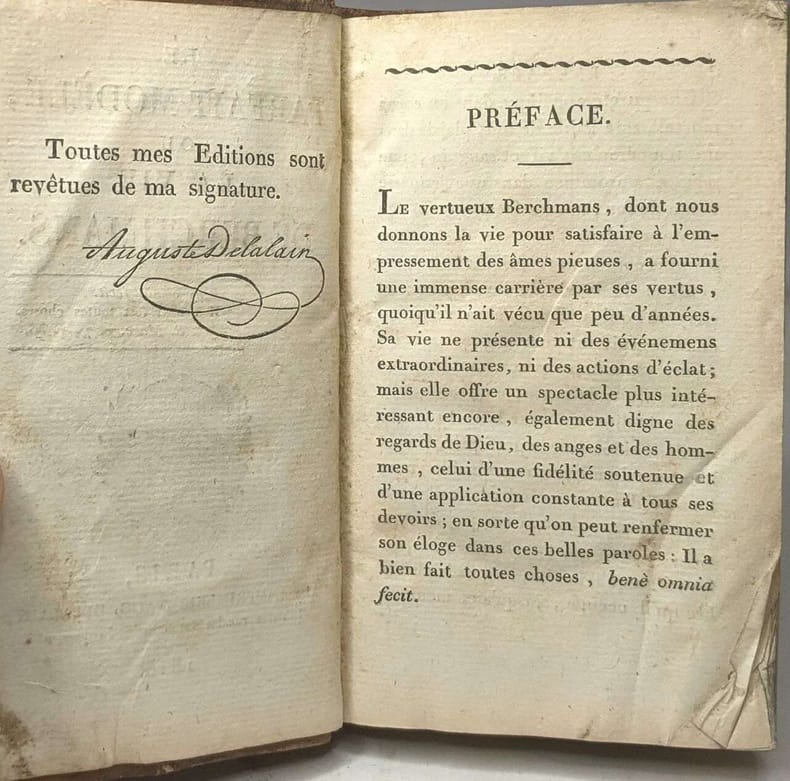 Toutes mes Editions sont
revêtues de ma signature.
Auguste Delalain
PRÉFACE.
LE vertueux Berchmans, dont nous
donnons la vie pour satisfaire à l'em-
pressement des âmes pieuses, a fourni
une immense carrière par ses vertus,
quoiqu'il n'ait vécu que peu d'années.
Sa vie ne présente ni des événemens
extraordinaires, ni des actions d'éclat;
mais elle offre un spectacle plus inté-
ressant encore, également digne des
regards de Dieu, des anges et des hom-
mes, celui d'une fidélité soutenue et
d'une application constante à tous ses
devoirs; en sorte qu'on peut renfermer
son éloge dans ces belles paroles: Il a
bien fait toutes choses, benè omnia
fecit.